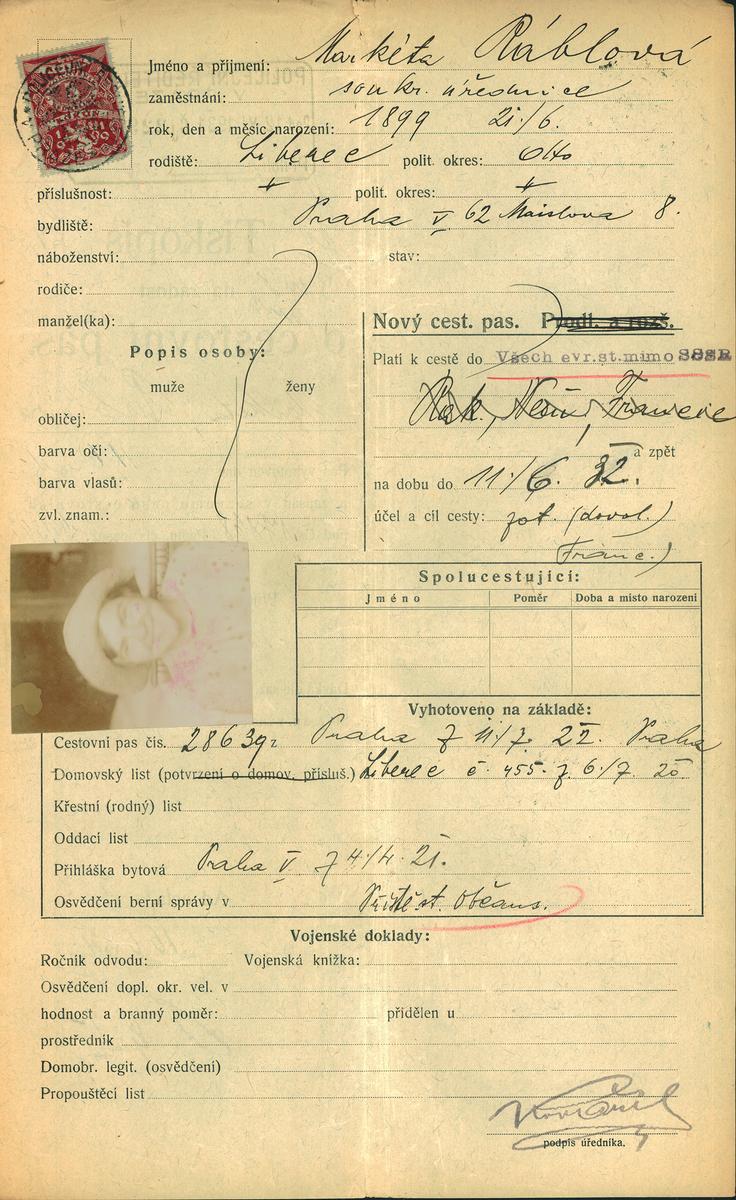 Jméno a příjmení: Markéta Ráblová
zaměstnání: soukr. úřednice
rok, den a měsíc narození: 1899 21./6.
rodiště: Liberec polit. okres: dtto
příslušnost: polit. okres:
bydliště: Praha V 62 Maislova 8.
náboženství: stav:
rodiče:
manžel(ka):
Popis osoby:
muže ženy
obličej:
barva očí:
barva vlasů:
zvl. znam.:
Nový cest. pas. Prodl. a rozš.
Platí k cestě do Všech evr.st.mimo SSSR
Rak., Něm., Francie
a zpět
na dobu do 11./6. 32.
účel a cíl cesty: pot. (dovol.)
Franc.)
Spolucestující:
Jméno Poměr Doba a místo narození
Vyhotoveno na základě:
Cestovní pas čís. 28639 Praha z 11/7. Praha
Domovský list (potvrzení o domov. přísluš.) Liberec č. 455 z 6./7. 20
Křestní (rodný) list
Oddací list
Přihláška bytová Praha V z 4/4. 21.
Osvědčení berní správy v st. Občans.
Vojenské doklady:
Ročník odvodu: Vojenská knížka:
Osvědčení dopl. okr. vel. v
hodnost a branný poměr: přidělen u
prostředník
Domobr. legit. (osvědčení)
Propouštěcí list
podpis úředníka.